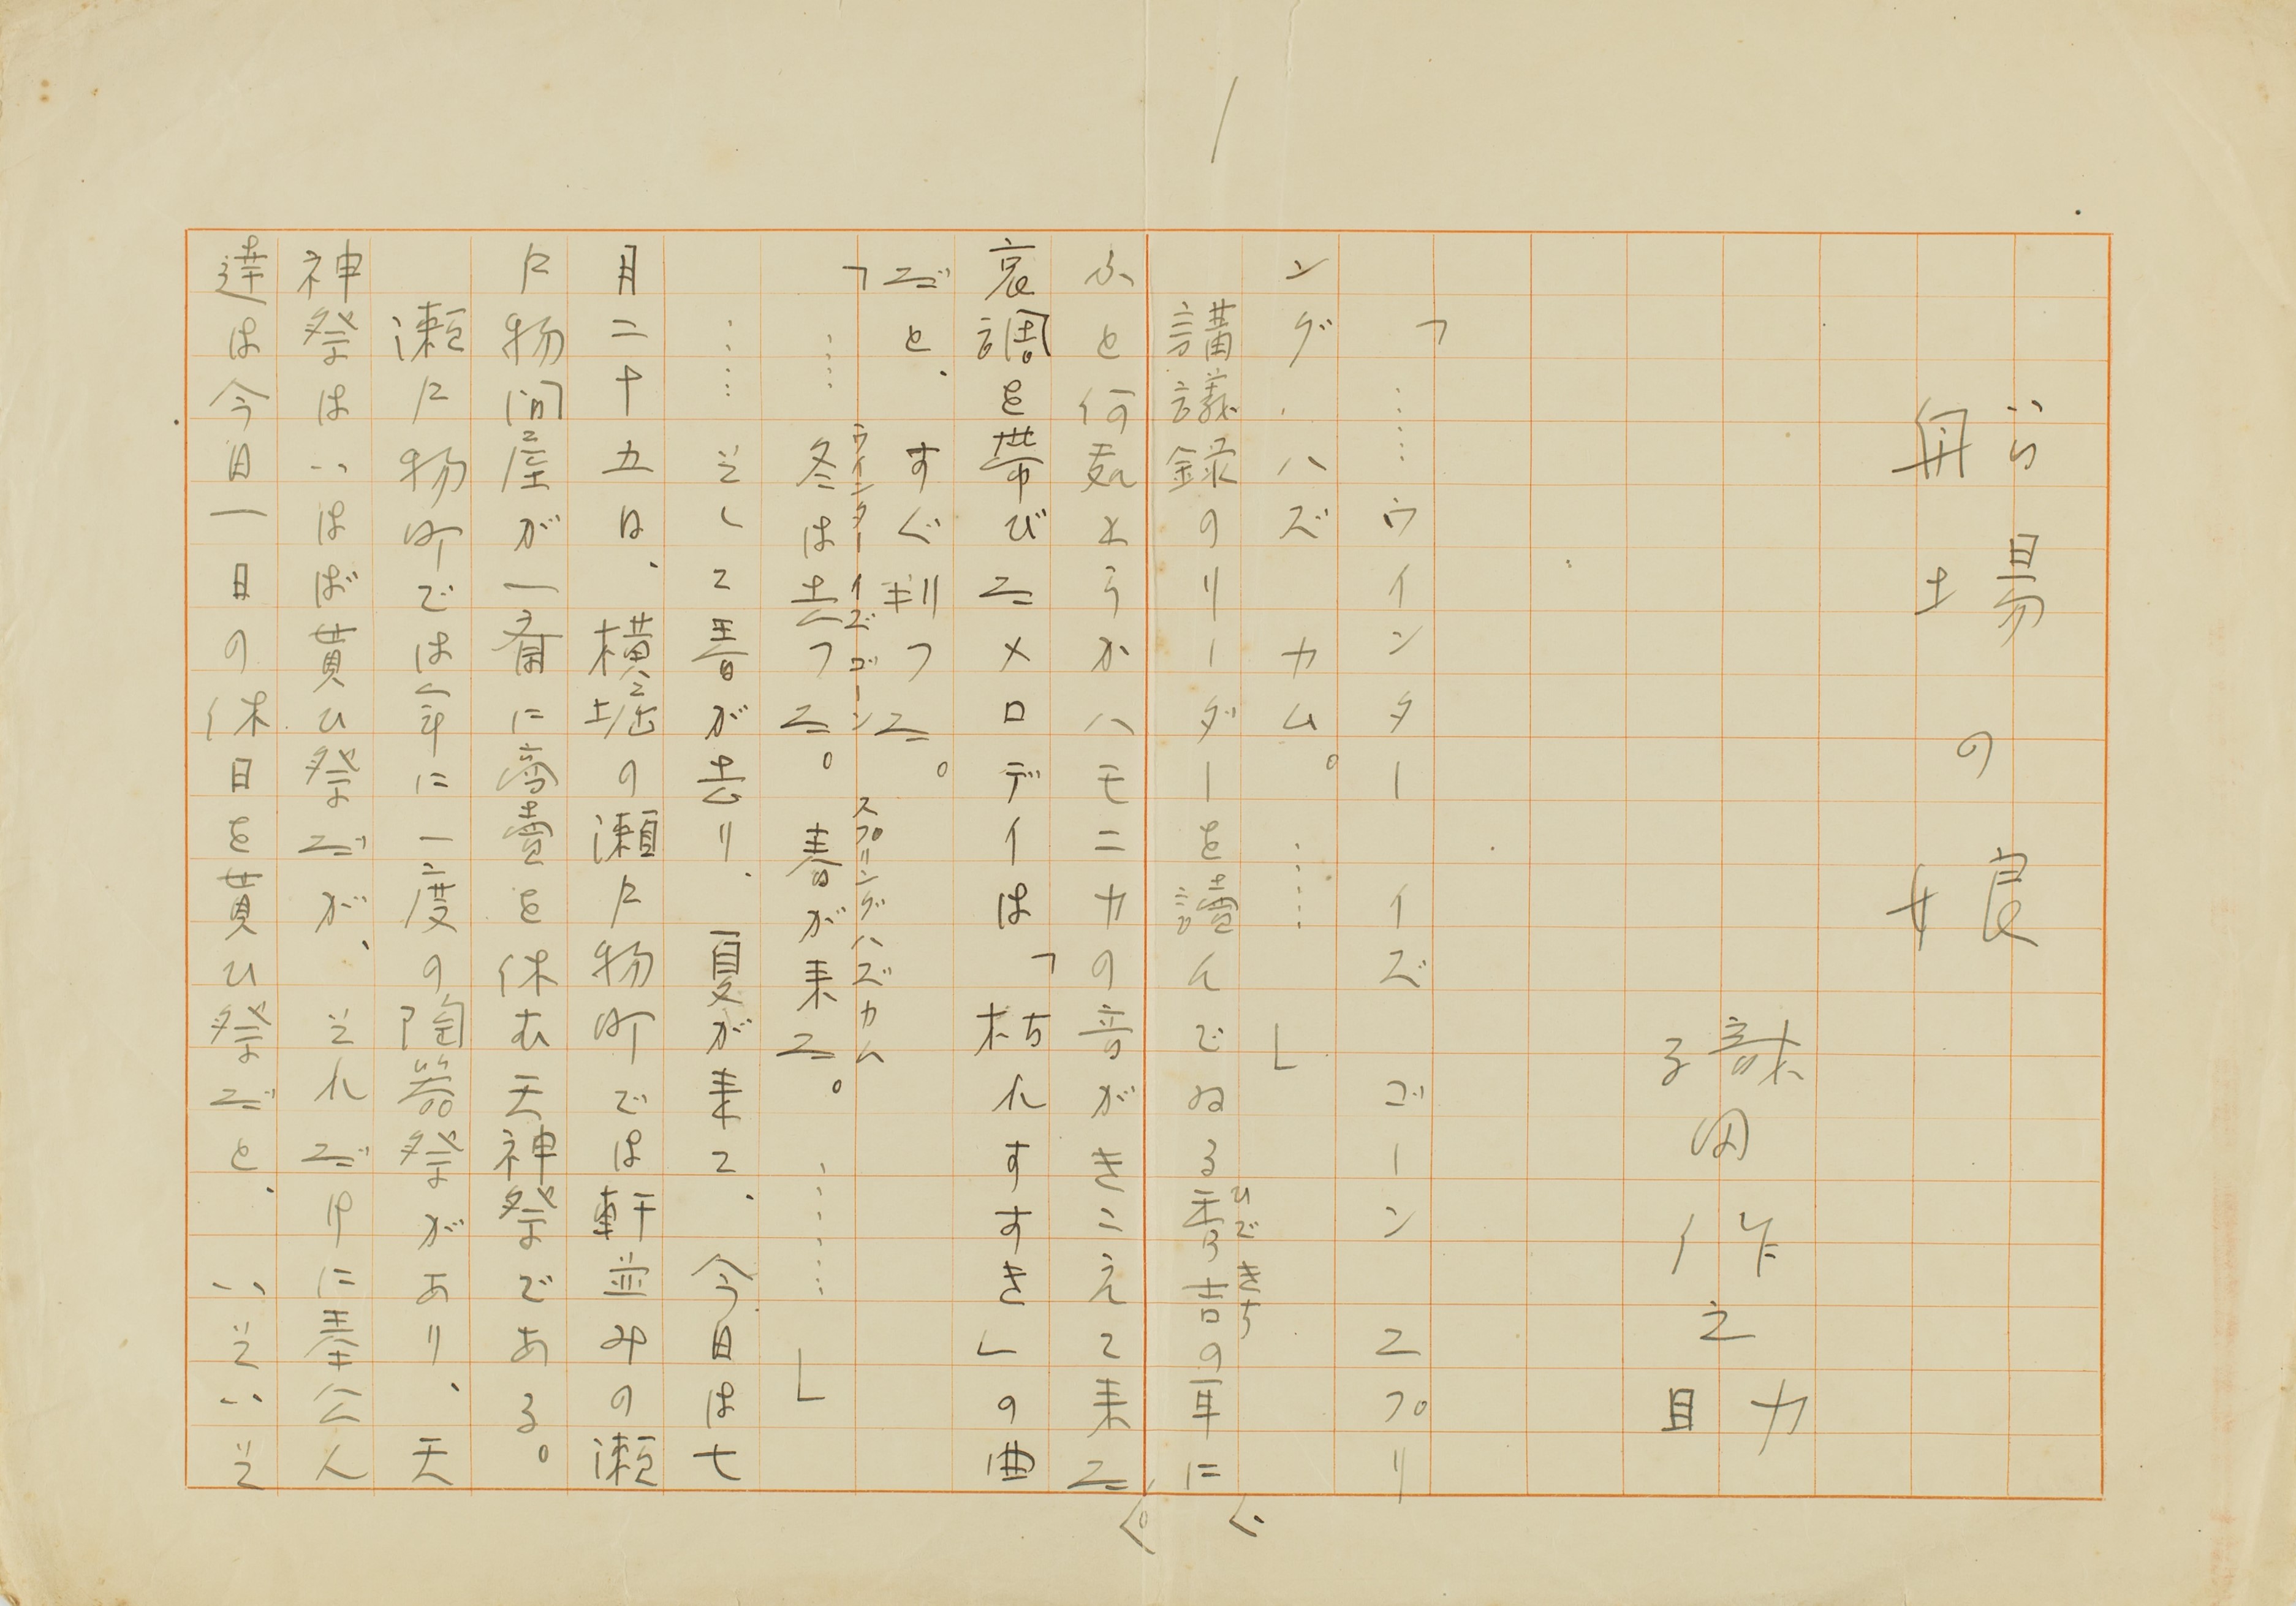 1
船場の娘
織田作之助
「……ウインター イズ ゴーン スプリ
ング、ハズ カム。……」
講議録のリーダーを讀んでゐる秀吉の耳に、
ひできち
ふと何處からかハモニカの音がきこえて来た。
哀調を帯びたメロディは「枯れすすき」の曲
だと、すぐ判つた。
ウインターイズゴーン スプリングハズカム
「……冬は去つた。春が来た。……」
……そして春が去り、夏が来て、今日は七
月二十五日、横堀の瀬戸物町では軒並みの瀬
戸物問屋が一齊に商賣を休む天神祭である。
瀬戸物町では年に一度の陶器祭があり、天
神祭はいはば貰ひ祭だが、それだけに奉公人
達は今日一日の休日を貰ひ祭だと、いそいそ